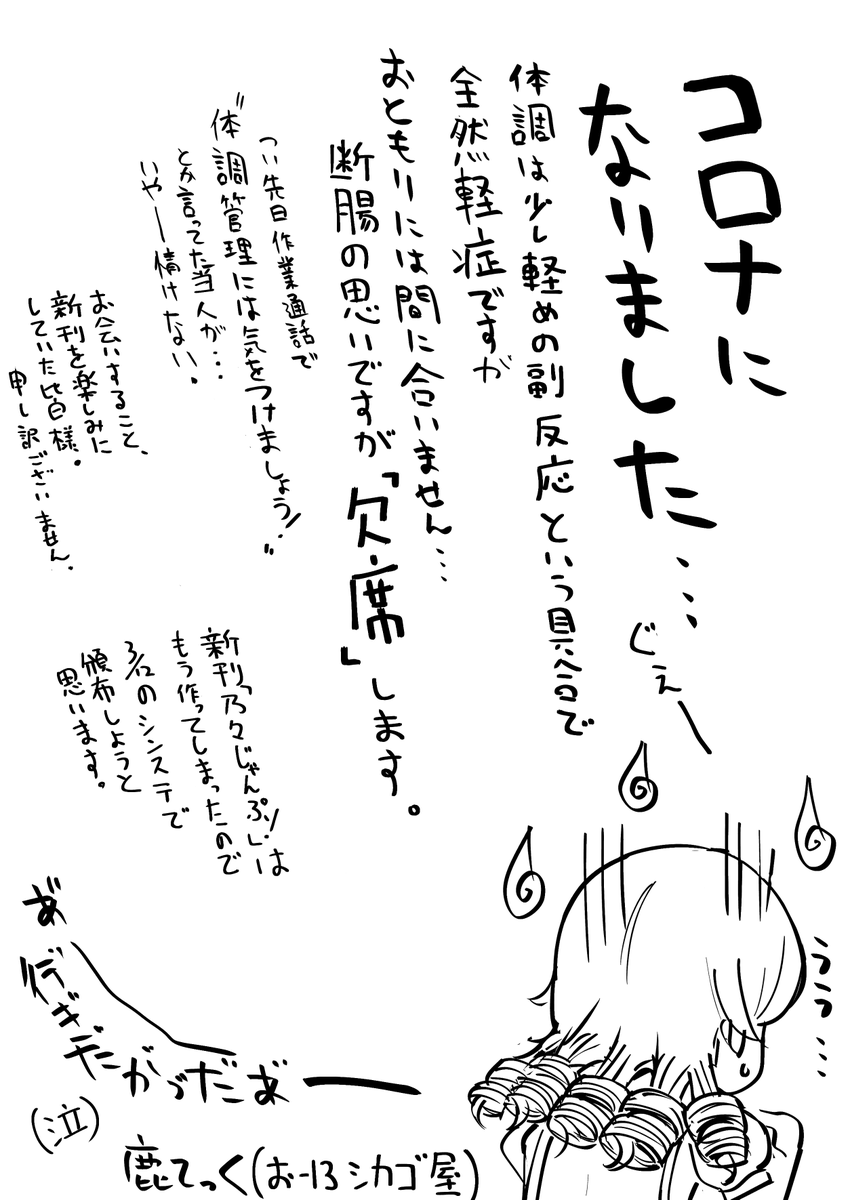 コロナに
なりました…
ぐぇー
体調は少し軽めの副反応という具合で
全然軽症ですが
おともりには間に合いません…
断腸の思いですが「欠席」します。
つい先日作業通話で
"体調管理には気をつけましょう!"
とか言ってた当人が…
いやー情けない。
お会いすること、
新刊を楽しみに
していた皆様。
申し訳ございません。
新刊「乃々じゃんぷ!」は
もう作ってしまったので
3/12のシンステで
頒布しようと
思います。
うぅ…
あ゛行ぎだがっだあ゛ー
(泣)
鹿てっく(お-13シカゴ屋)